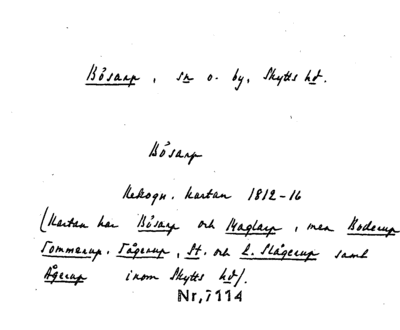 Bösarp, sn o. by, Skytts hd.
Bösarp
Rekogn. kartan 1812-16
(Kartan har Bösarp och Maglarp, men Boderup
Tommarup, Fågerup, St. och L. Slågerup samt
Ågerup inom Skytts hd).
Nr, 7114